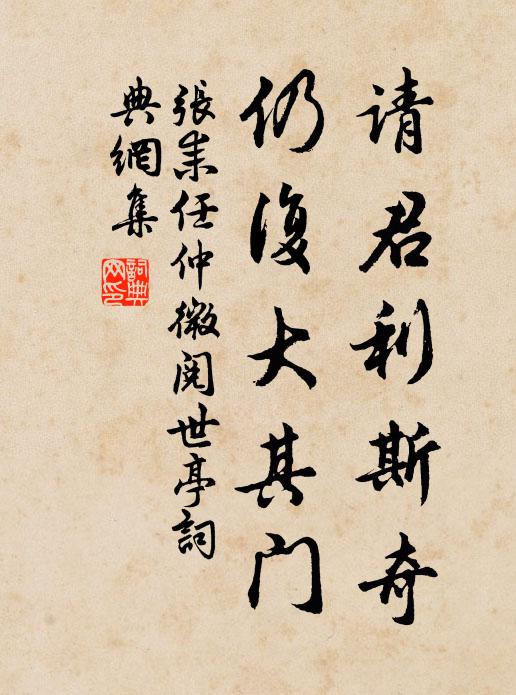 请君利斯奇
仍復大其门
張耒任仲微阅世亭詞
典網集
詞典
网印